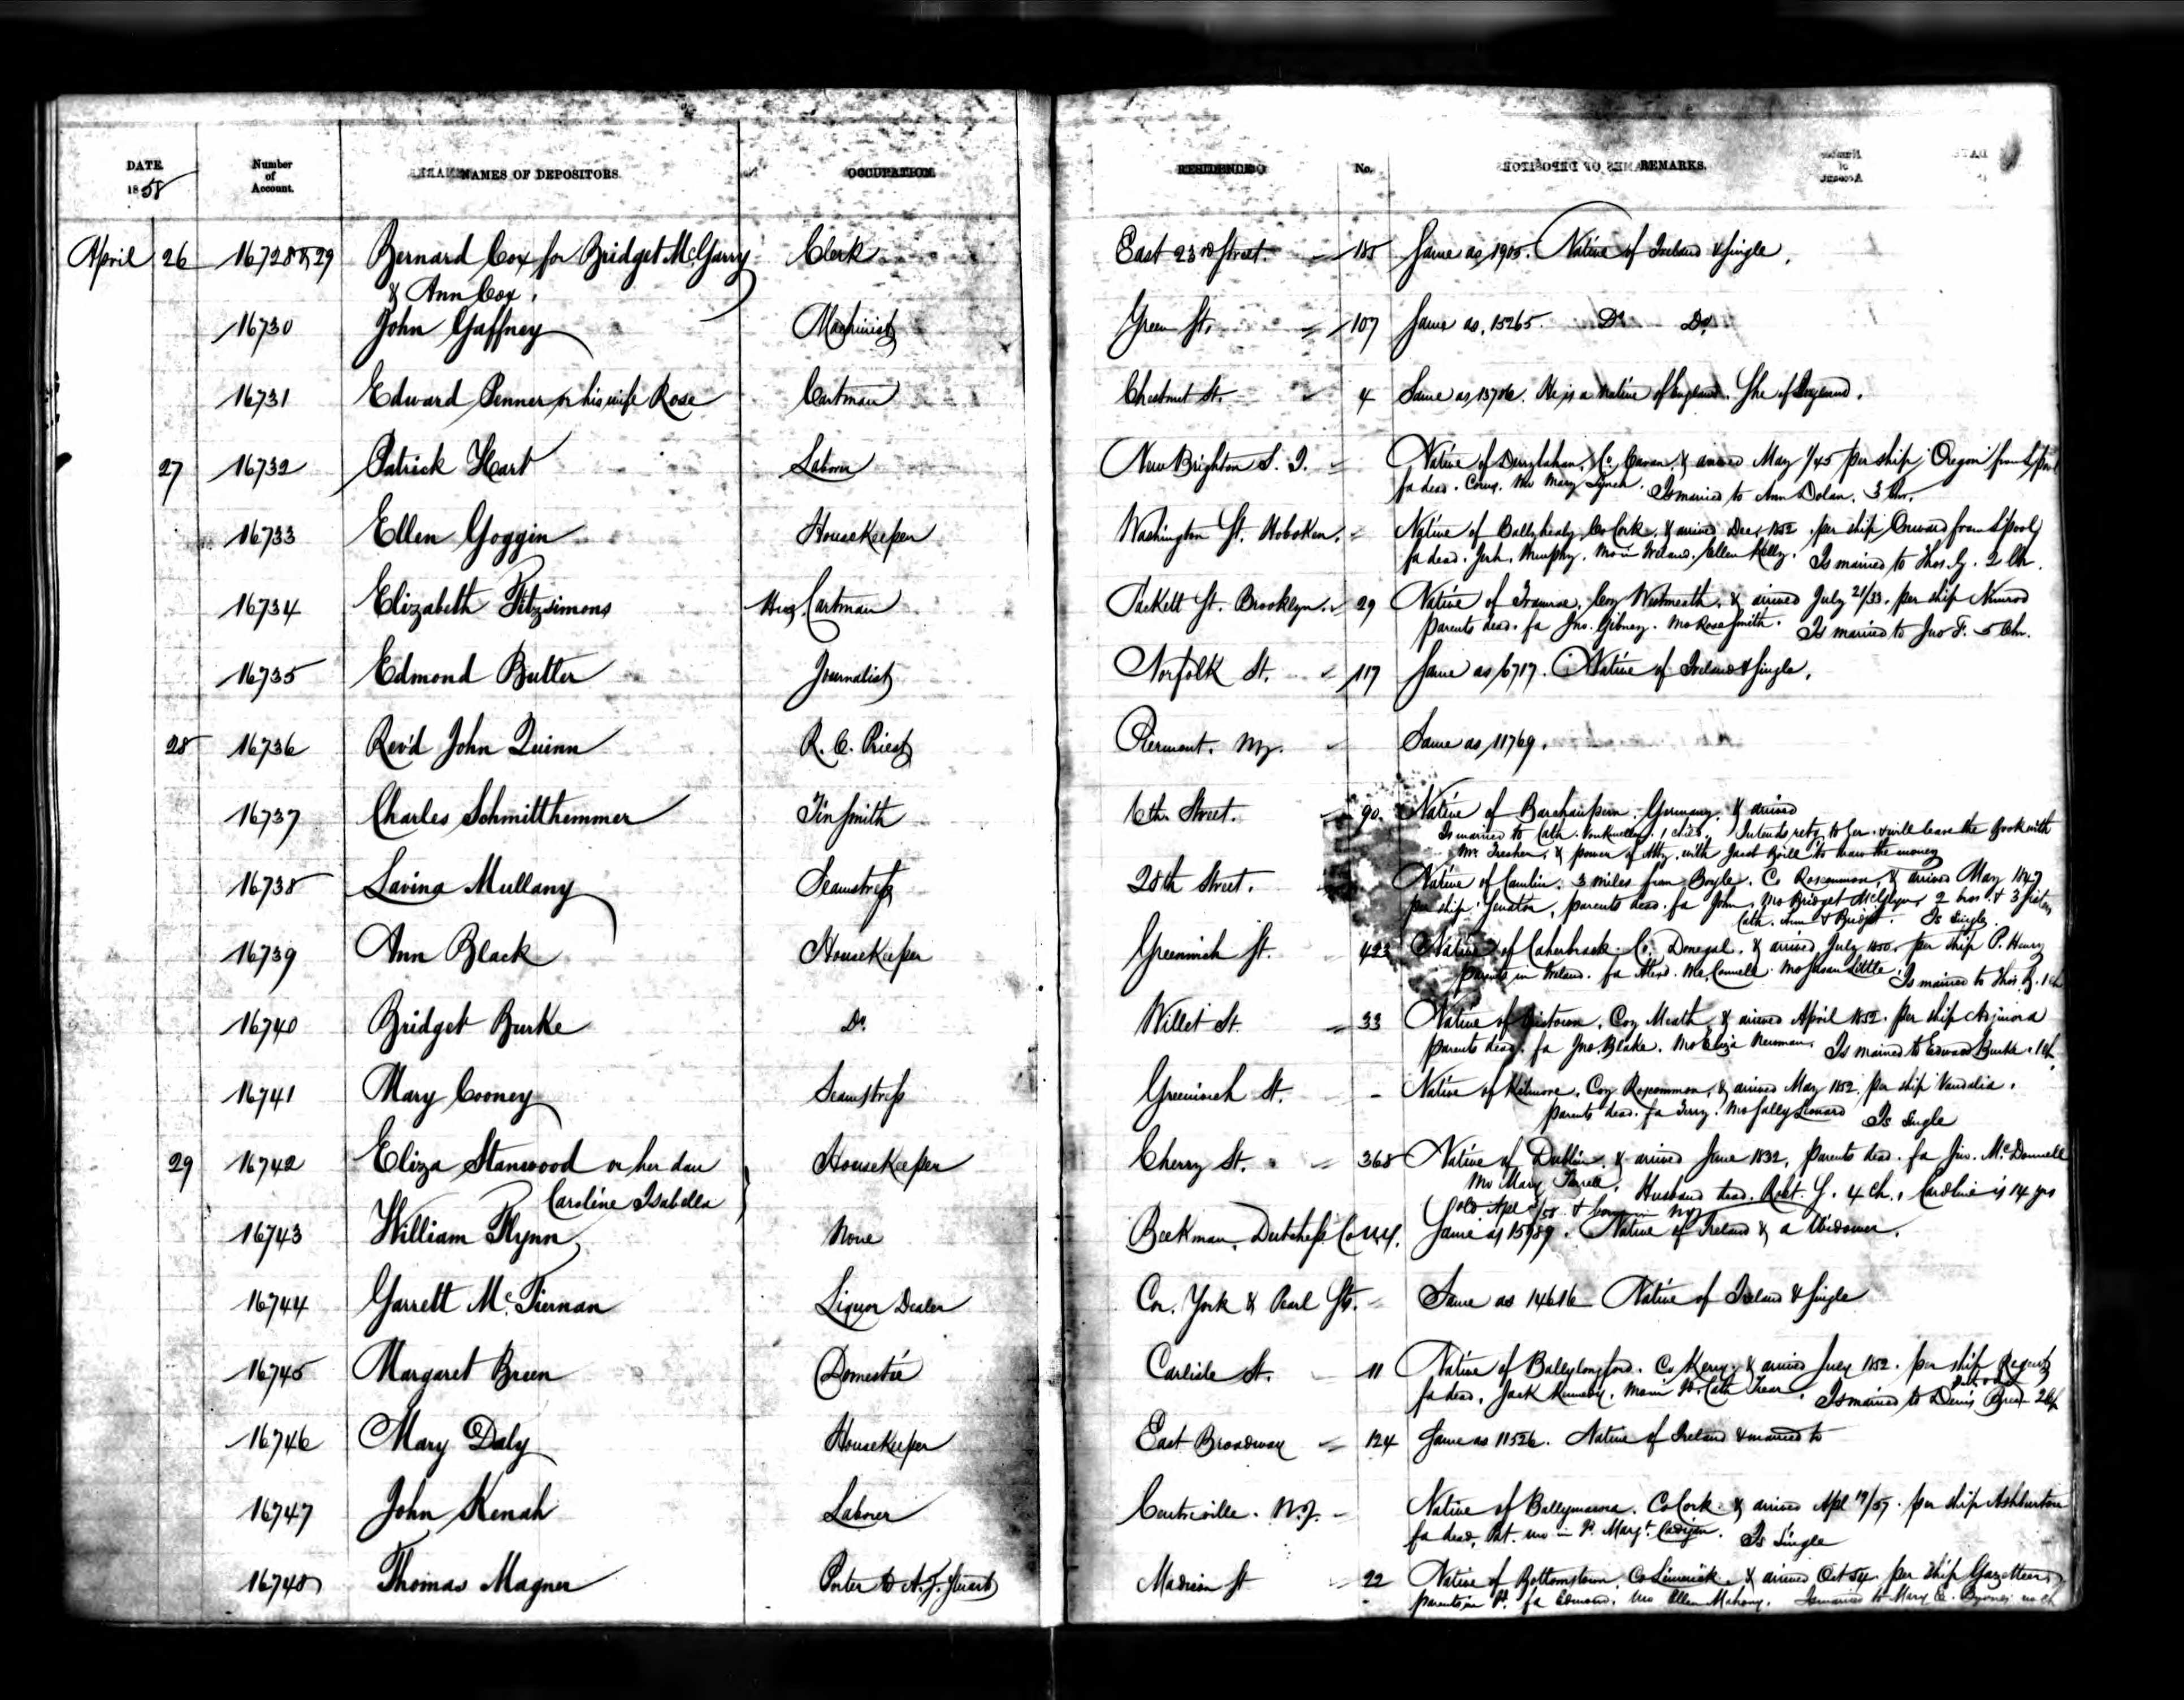 DATE. Number of Account. NAMES OF DEPOSITORS. OCCUPATION. RESIDENCE No. REMARKS.
1858
April 26 16728&29 Bernard Cox for Bridget McGarry Clerk East 23rd Street. 185 Same as 1905. Native of Ireland & Single.
& Ann Cox.
16730 John Gaffney Machinist Green St. 107 Same as 15265. Do Do
16731 Edward Penner or his wife Rose Cartman Chestnut St. 4 Same as 13706. He is a native of England. She of
27 16732 Patrick Hart Laborer New Brighton S. I. Native of Derrylahan, Co. Cavan, & arrived May 1/45 per ship Oregon from L'pool
fa dead. Mo Mary Lynch. Is married to Ann Dolan. 3 Chn.
16733 Ellen Goggin HouseKeeper Washington St. Hoboken. Native of Ballyhealy, Co Cork, & arrived Dec. 1852 per ship Onward from L'pool
fa dead. Jerh. Murphy. Mo in Ireland, Ellen Kelly. Is married to Thos. G. 2 Ch.
16734 Elizabeth Fitzsimons Hus Cartman Sackett St. Brooklyn. 29 Native of Coy Westmeath, & arrived July 21/33. per ship Nimrod
parents dead. fa Jno. Gibney. Mo Rose Smith. Is married to Jno F. 5 Chn.
16735 Edmond Butler Journalist Norfolk St. 117 Same as 6717. Native of Ireland & Single.
28 16736 Rev'd John Quinn R. C. Priest Piermont. NY. Same as 11769.
16737 Charles Schmitthemmer Tin Smith 6th Street. 90. Native of Germany. & arrived
Is married to Cath. 1 child. Intends retg to Ger. & will leave the Book with
Mr & power of Atty. with Jacob to draw the money
16738 Lavina Mullany Seamstress 28th Street. Native of Camlin. 3 miles from Boyle. Co Roscommon, & arrived May 1847
per ship Senator, parents dead. fa John, Mo Bridget McGlynn, 2 bros. & 3 sisters
Cath. Ann & Bridget. Is Single
16739 Ann Black HouseKeeper Greenwich St. 423 Native of Co. Donegal. & arrived July 1850. per ship P. Henry
parents in Ireland. fa Alexd. McConnell. Mo Susan Little. Is married to Thos. B. 1 ch
16740 Bridget Burke Do. Willet St. 33 Native of Coy Meath, & arrived April 1852. per ship
parents dead. fa Jno. Blake. Mo Eliza Newman. Is married to Edward Burke. 1 Ch.
16741 Mary Cooney Seamstress Greenwich St. - Native of Kilmore, Coy Roscommon, & arrived May 1852. per ship Vandalia.
parents dead. fa Terry. Mo Sally Leonard Is Single
29 16742 Eliza Stanwood or her dau HouseKeeper Cherry St. 368 Native of Dublin, & arrived June 1832. parents dead. fa Jno. McDonnell
Caroline Isabella Mo Mary Farrell. Husband dead. Robt. 4 Ch., Caroline is 14 yrs
old Apl /58 & born in NY
16743 William Flynn None Beekman, Dutchess Co N.Y. Same as 15989. Native of Ireland & a Widower.
16744 Garrett McTiernan Liquor Dealer Cor. York & Pearl Sts. Same as 14616 Native of Ireland & Single
16745 Margaret Breen Domestic Carlisle St. 11 Native of Ballylongford. Co Kerry. & arrived July 1852. per ship Regent
fa dead, Jack Kennedy. Mo in Id. Cath Is married to Denis Breen 2 Ch
16746 Mary Daly HouseKeeper East Broadway 124 Same as 11526. Native of Ireland & married to
16747 John Kenah Laborer Centreville. N.J. Native of Co Cork. & arrived Apl 19/57. per ship Ashburton
fa dead, Pat. mo in Id. Margt. Is Single
16748 Thomas Magner Porter to A. T. Stewart Madison St 22 Native of Bottomstown. Co Limerick. & arrived Oct 54. per ship Gazetteer
parents in Id. fa Edmond. Mo Ellen Mahony. Is married to Mary E. no ch